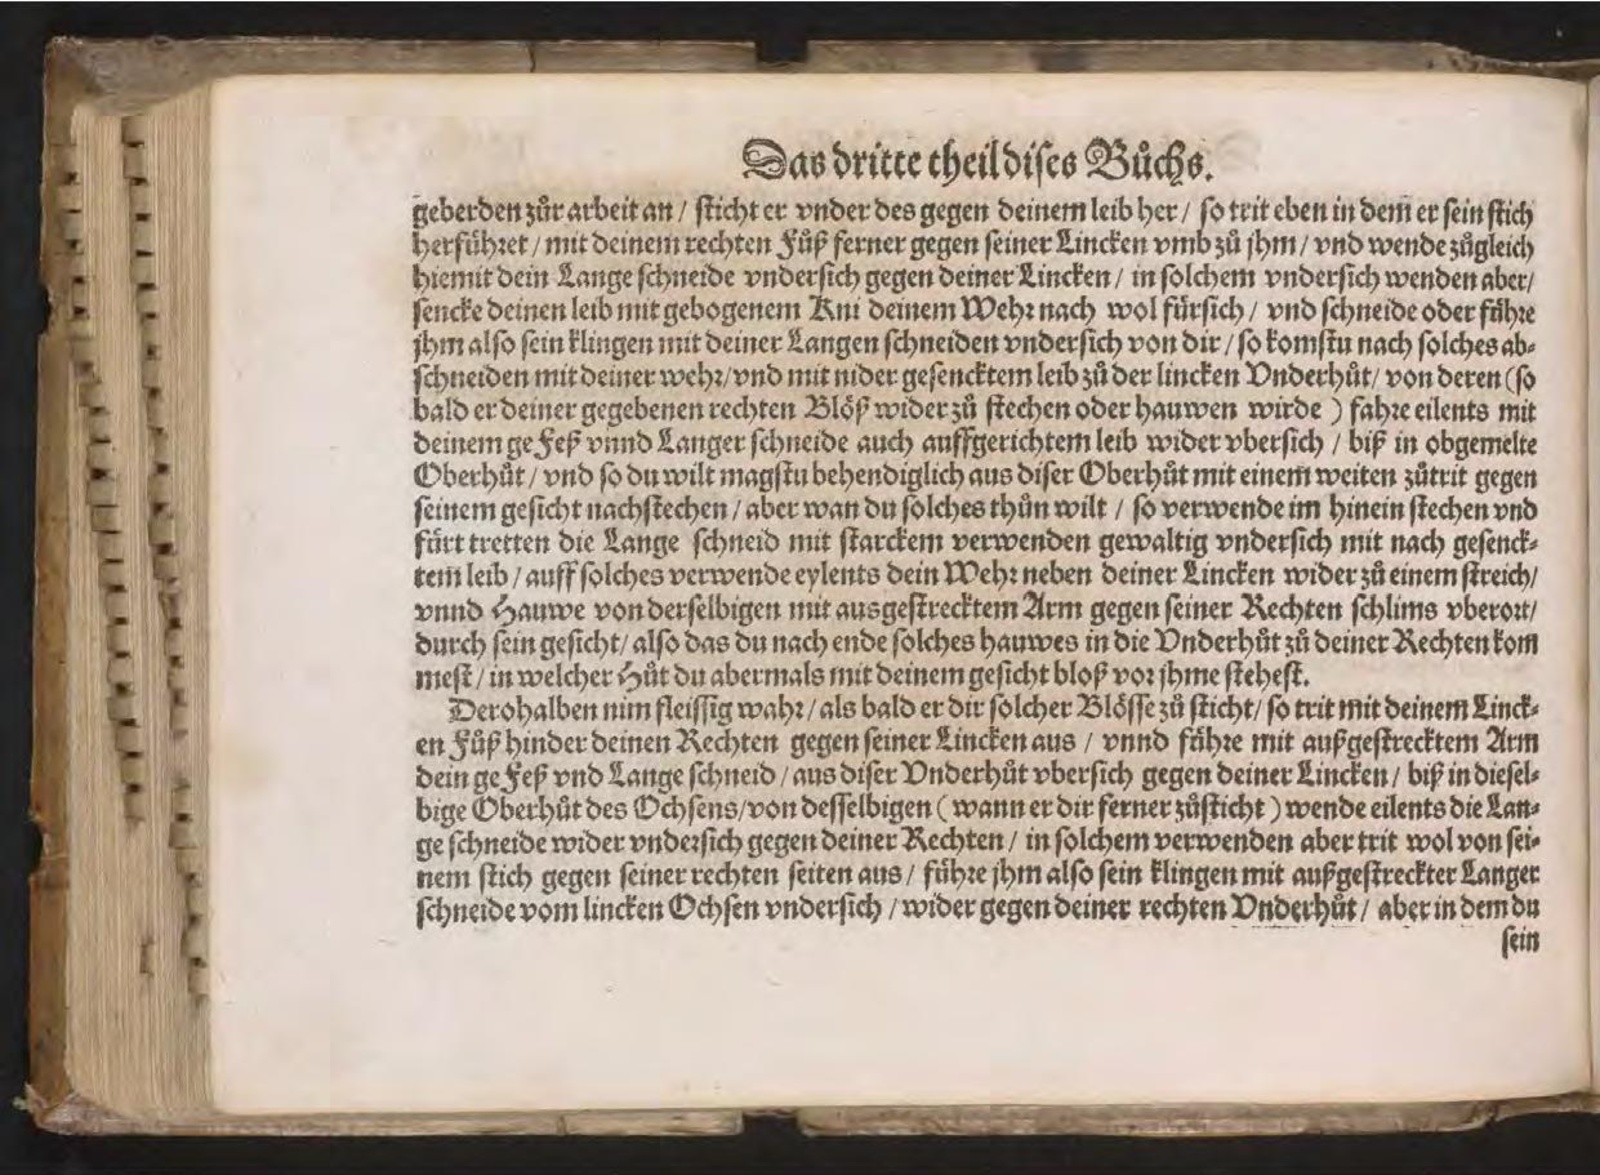 Das dritte theil dises Bůchs.
geberden zůr arbeit an / sticht er vnder des gegen deinem leib her / so trit eben in dem er sein stich
herführet / mit deinem rechten Fůß ferner gegen seiner Lincken vmb zů jhm / vnd wende zůgleich
hiemit dein Lange schneide vndersich gegen deiner Lincken / in solchem vndersich wenden aber /
sencke deinen leib mit gebogenem Kni deinem Wehr nach wol fürsich / vnd schneide oder führe
jhm also sein klingen mit deiner Langen schneiden vndersich von dir / so komstu nach solches ab-
schneiden mit deiner wehr / vnd mit nider gesencktem leib zů der lincken Vnderhůt / von deren (so
bald er deiner gegebenen rechten Blöß wider zů stechen oder hauwen wirde ) fahre eilents mit
deinem gefeß vnnd Langer schneide auch auffgerichtem leib wider vbersich / biß in obgemelte
Oberhůt / vnd so du wilt magstu behendiglich aus diser Oberhůt mit einem weiten zůtrit gegen
seinem gesicht nachstechen / aber wan du solches thůn wilt / so verwende im hinein stechen vnd
fürt tretten die Lange schneid mit starckem verwenden gewaltig vndersich mit nach gesenck-
tem leib / auff solches verwende eylents dein Wehr neben deiner Lincken wider zů einem streich /
vnnd Hauwe von derselbigen mit ausgestrecktem Arm gegen seiner Rechten schlims vberort /
durch sein gesicht / also das du nach ende solches hauwes in die Vnderhůt zů deiner Rechten kom
mest / in welcher Hůt du abermals mit deinem gesicht bloß vor jhme stehest.
Derohalben nim fleissig wahr / als bald er dir solcher Blösse zů sticht / so trit mit deinem Linck-
en Fůß hinder deinen Rechten gegen seiner Lincken aus / vnnd führe mit außgestrecktem Arm
dein gefeß vnd Lange schneid / aus diser Vnderhůt vbersich gegen deiner Lincken / biß in diesel-
bige Oberhůt des Ochsens / von desselbigen ( wann er dir ferner zůsticht ) wende eilents die Lan-
ge schneide wider vndersich gegen deiner Rechten / in solchem verwenden aber trit wol von sei-
nem stich gegen seiner rechten seiten aus / führe jhm also sein klingen mit außgestreckter Langer
schneide vom lincken Ochsen vndersich / wider gegen deiner rechten Vnderhůt / aber in dem du
sein